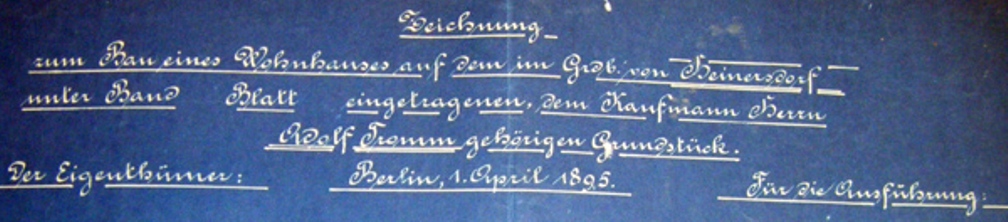 Zeichnung
zum Bau eines Wohnhauses auf dem im Grdb. von Heinersdorf
unter Band Blatt eingetragenen, dem Kaufmann Herrn
Adolf Tromm gehörigen Grundstück.
Der Eigenthümer: Berlin, 1. April 1895. Für die Ausführung: